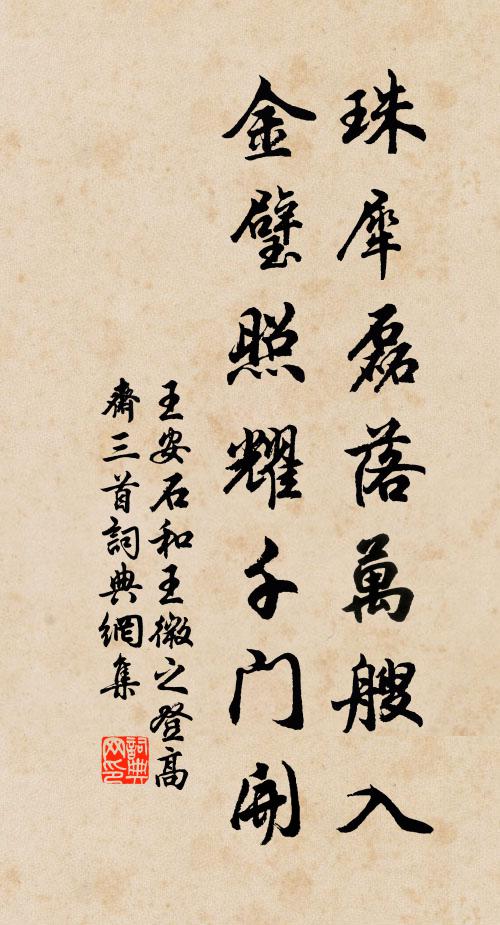 珠犀磊落萬艘入
金璧照耀千门開
王安石和王微之登高
齋三首詞典網集
詞典
网印